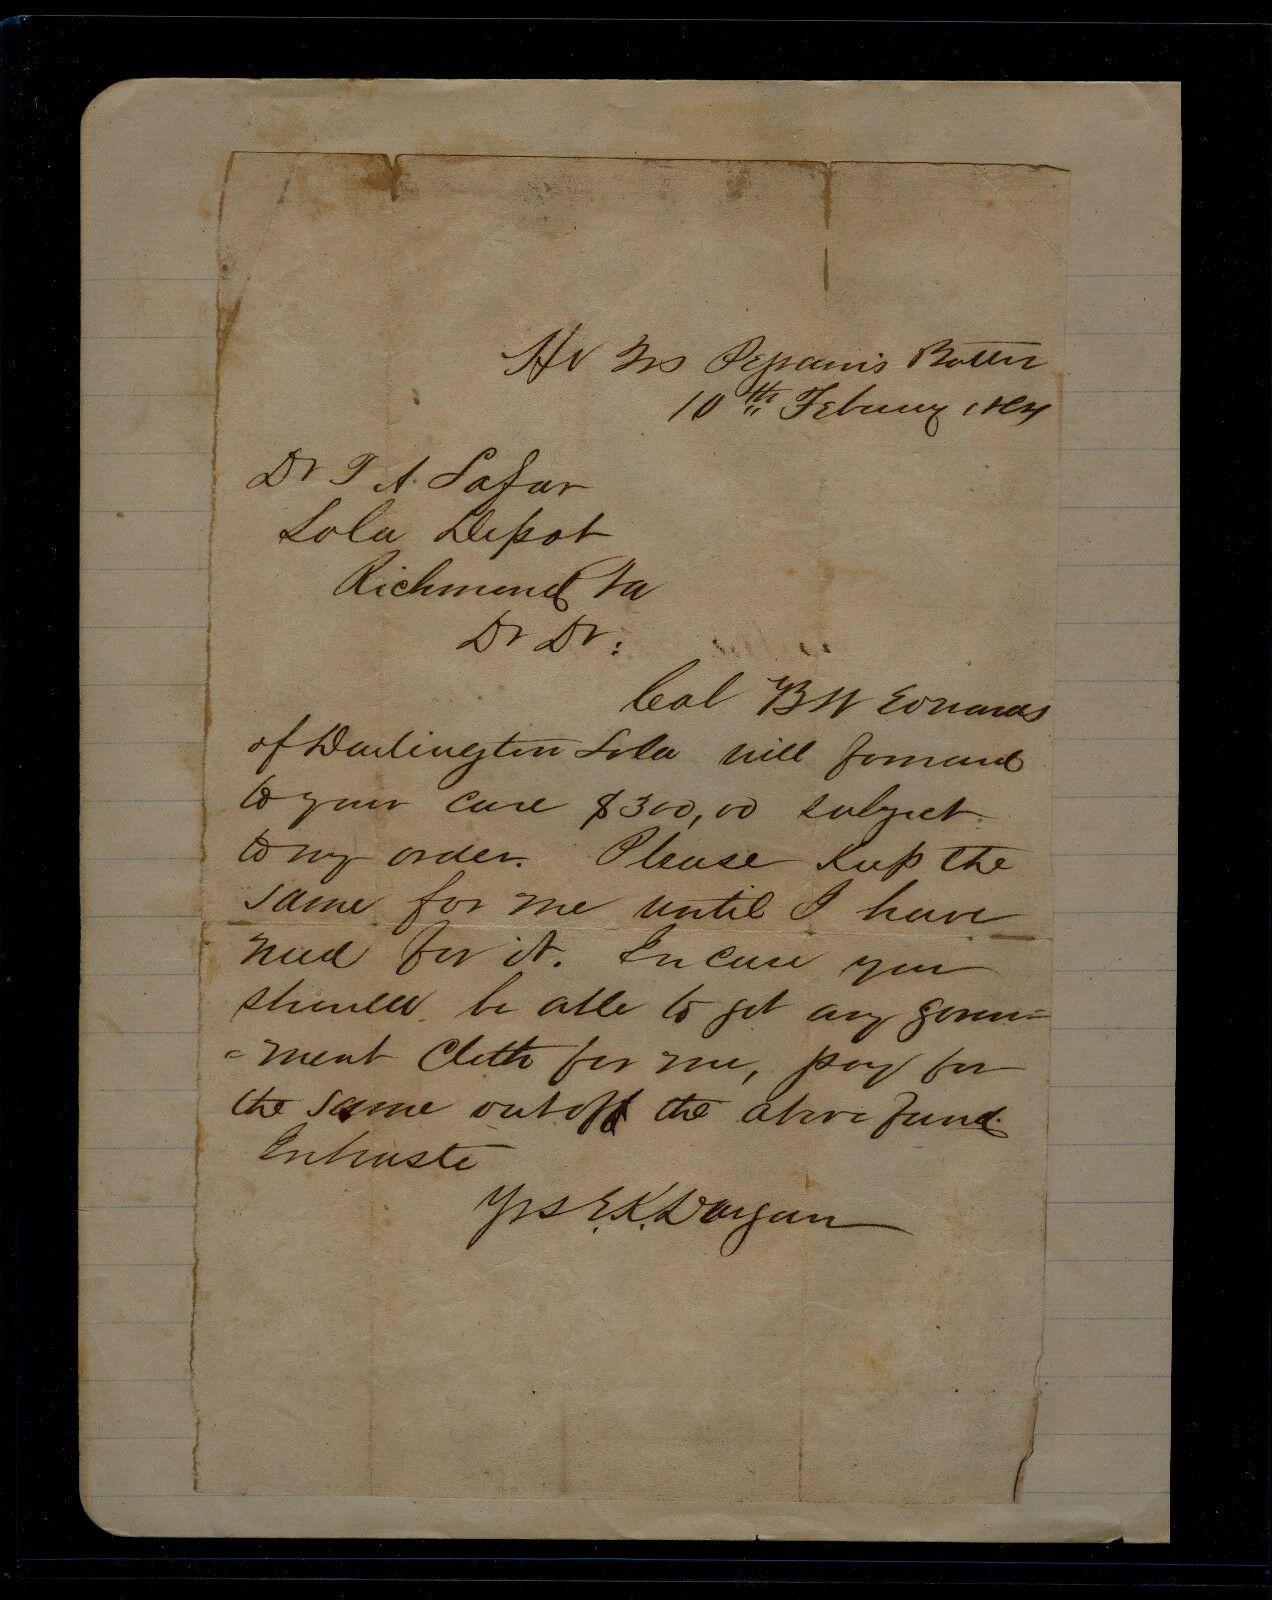 Hd Qrs Pegram's Batter
10th February 1864
Dr T A. Lafar
So Ca Depot
Richmond Va
Dr Dr:
Col B W Edwards
of Darlington So Ca will forward
to your care $300,00 subject
to my order. Please keep the
same for me until I have
need for it. In case you
should be able to get any govern=
=ment cloth for me, pay for
the same out off the above fund.
In haste
Yrs E. K. Dargan